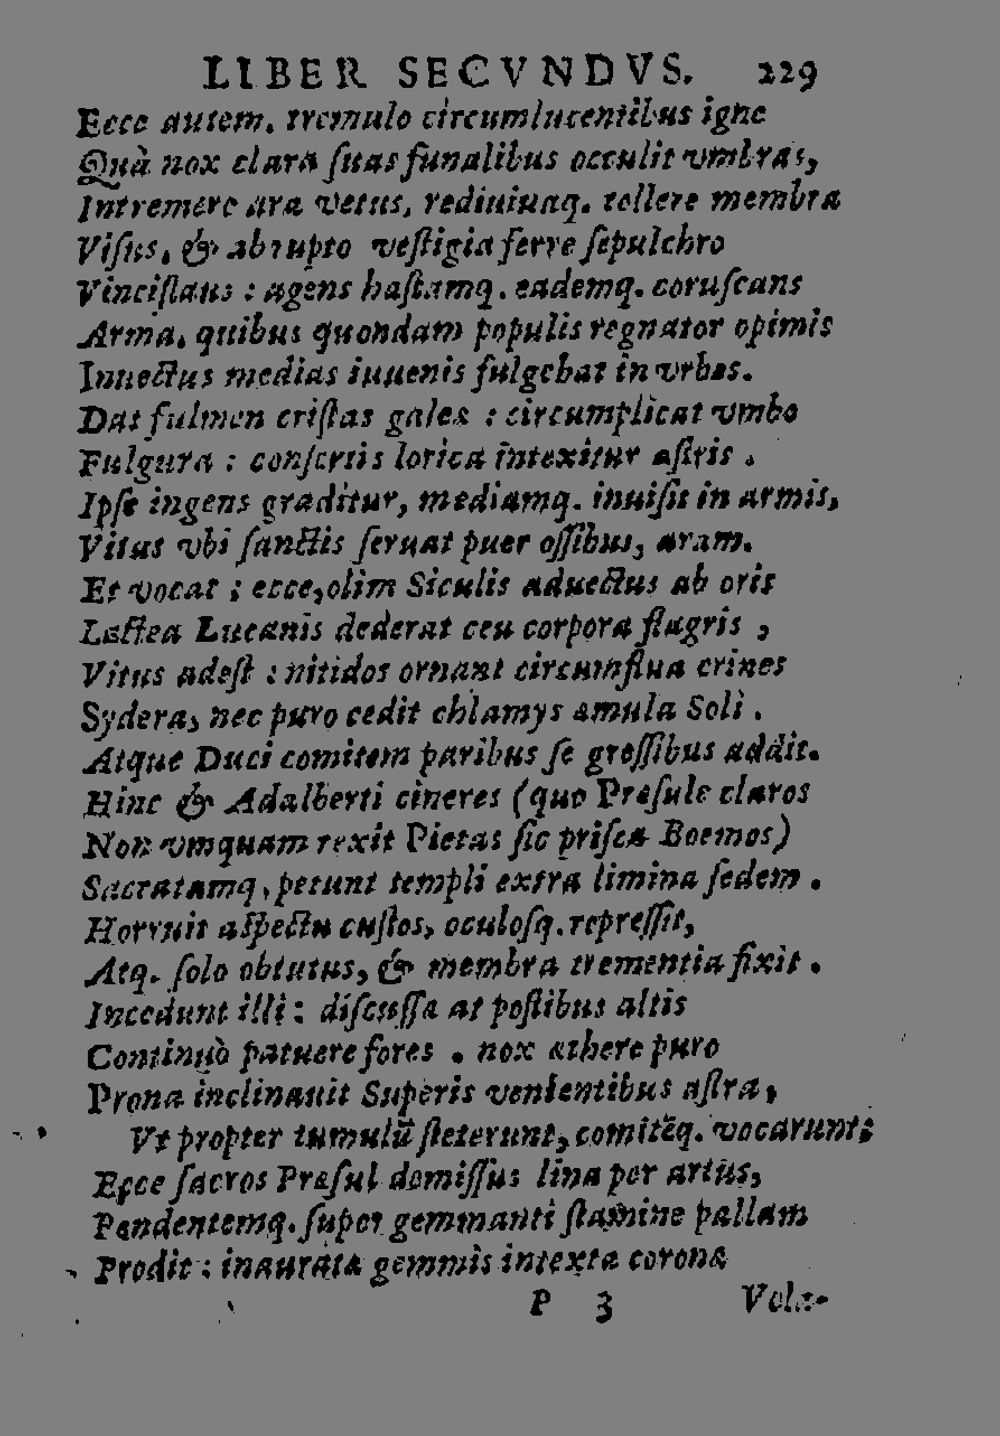 LIBER SECVNDVS. 229
Ecce autem. tremulo circumlucentibus igne
Quà nox clara ſuas funalibus occulit vmbras,
Intremere ara vetus, rediuiuaq. tollere membra
Viſus, & abrupto veſtigia ferre ſepulchro
Vinciſlaus : agens haſtamq. eademq. coruſcans
Arma, quibus quondam populis regnator opimis
Inuectus medias iuuenis fulgebat in vrbes.
Dat fulmen criſtas galea : circumplicat vmbo
Fulgura : conſertis lorica intexitur aſtris .
Ipſe ingens graditur, mediamq. inuiſit in armis,
Vitus vbi ſanctis ſeruat puer oſſibus, aram.
Et vocat ; ecce, olim Siculis aduectus ab oris
Lactea Lucanis dederat ceu corpora flagris ,
Vitus adeſt : nitidos ornant circumflua crines
Sydera, nec puro cedit chlamys æmula Soli .
Atque Duci comitem paribus ſe greſſibus addit.
Hinc & Adalberti cineres (quo Præſule claros
Non vmquam rexit Pietas ſic priſca Boemos)
Sacratamq. petunt templi extra limina ſedem .
Horruit aſpectu cuſtos, oculoſq. repreſſit,
Atq. ſolo obtutus, & membra trementia fixit .
Incedunt illi : diſcuſſa at poſtibus altis
Continuò patuere fores . nox æthere puro
Prona inclinauit Superis venientibus aſtra,
Vt propter tumulū ſteterunt, comitēq. vocarunt;
Ecce ſacros Præſul demiſſus lina per artus,
Pendentemq. ſuper gemmanti ſtamine pallam
Prodit : inaurata gemmis intexta corona
P 3 Vola-